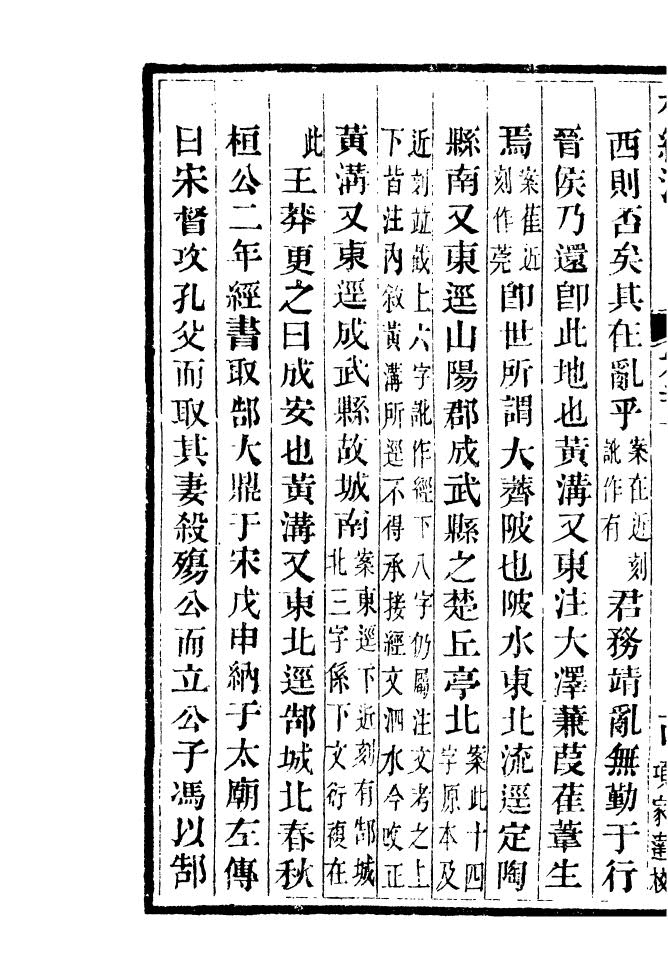 西則否矣其在亂乎案在近刻訛作有君務靖亂無勤于行
晉侯乃還卽此地也黃溝又東注大澤蒹葭萑葦生
焉案萑近刻作莞卽世所謂大薺陂也陂水東北流逕定陶
縣南又東逕山陽郡成武縣之楚丘亭北案此十四字原本及
近刻竝截上六字訛作經下八字仍屬注文考之上
下皆注內敘黃溝所逕不得承接經文泗水今改正
黃溝又東逕成武縣故城南案東逕下近刻有郜城北三字係下文衍複在
此王莽更之曰成安也黃溝又東北逕郜城北春秋
桓公二年經書取郜大鼎于宋戊申納于太廟左傳
曰宋督攻孔父而取其妻殺殤公而立公子馮以郜